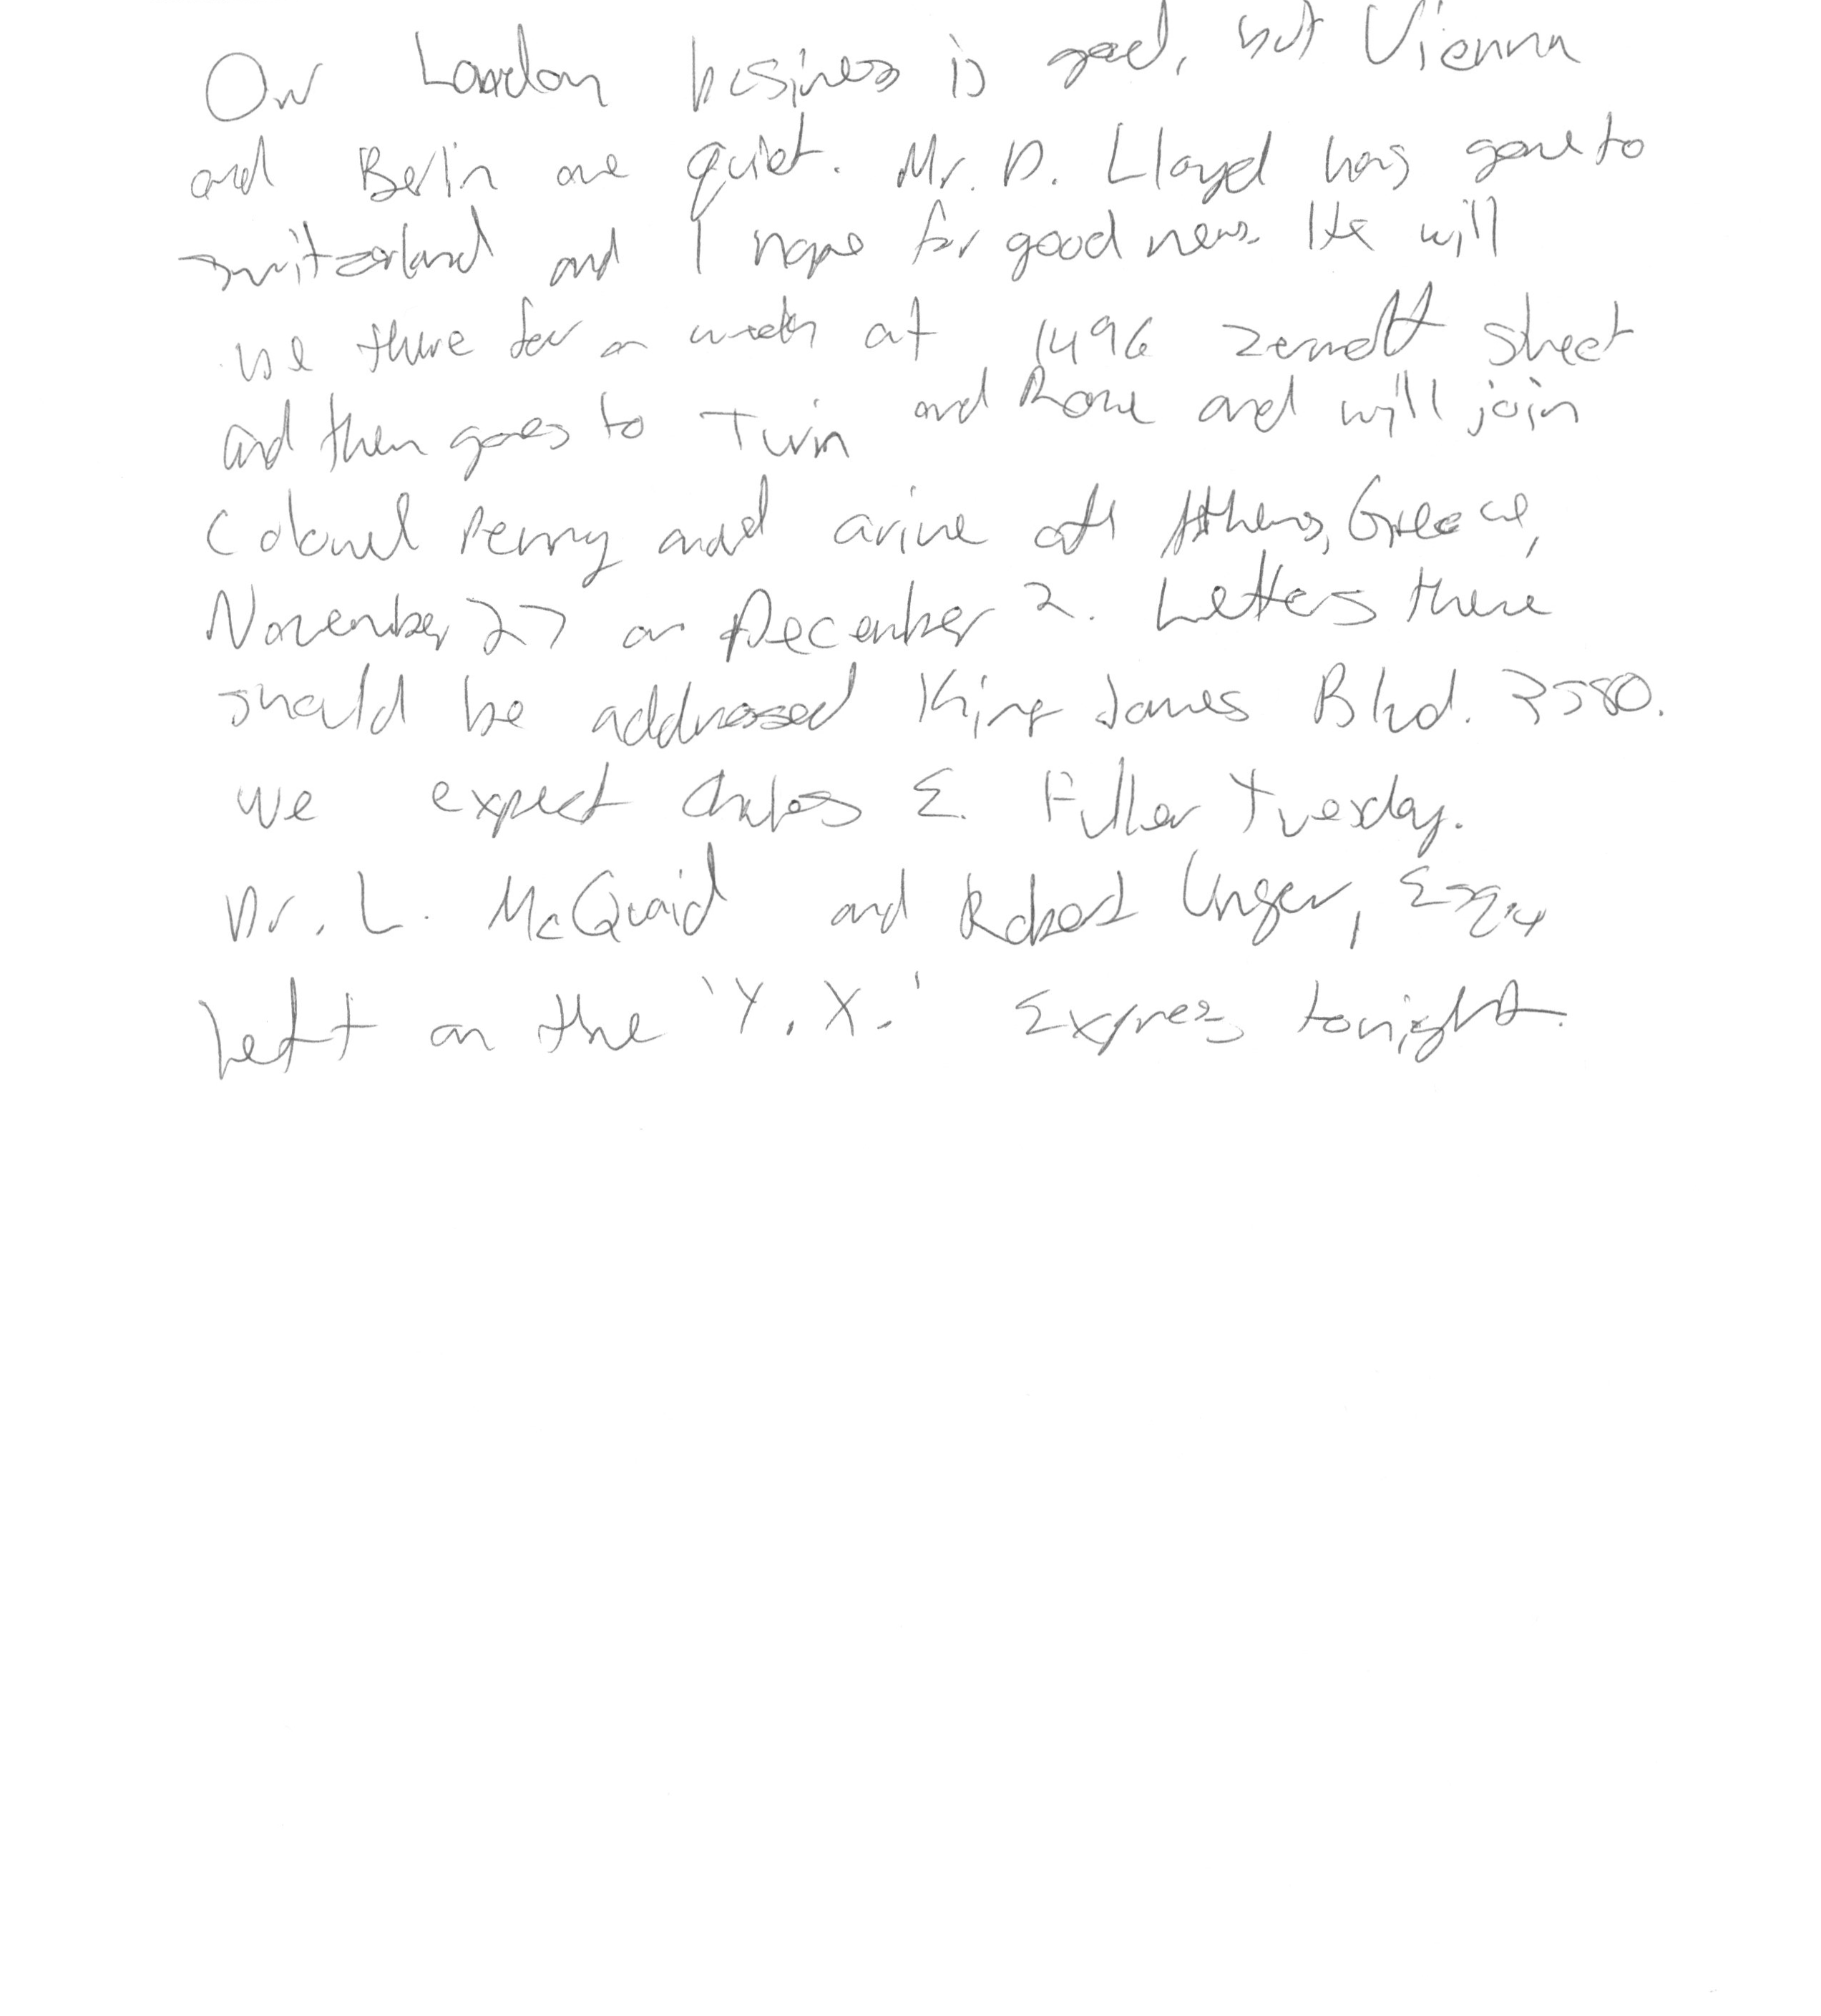 Our London business is good, but Vienna
and Berlin are quiet. Mr. D. Lloyd has gone to
Switzerland and I hope for good news. He will
be there for a week at 1496 Zermott Street
and then goes to Turin and Rome and will join
Colonel Perry and arrive at Athens, Greece,
November 27 or December 2. Letters there
should be addressed King James Blvd. 3580.
We expect Charles E. Fuller Tuesday.
Dr. L. McQuaid and Robert Unger, Esq.,
left on the 'Y. X.' Express tonight.